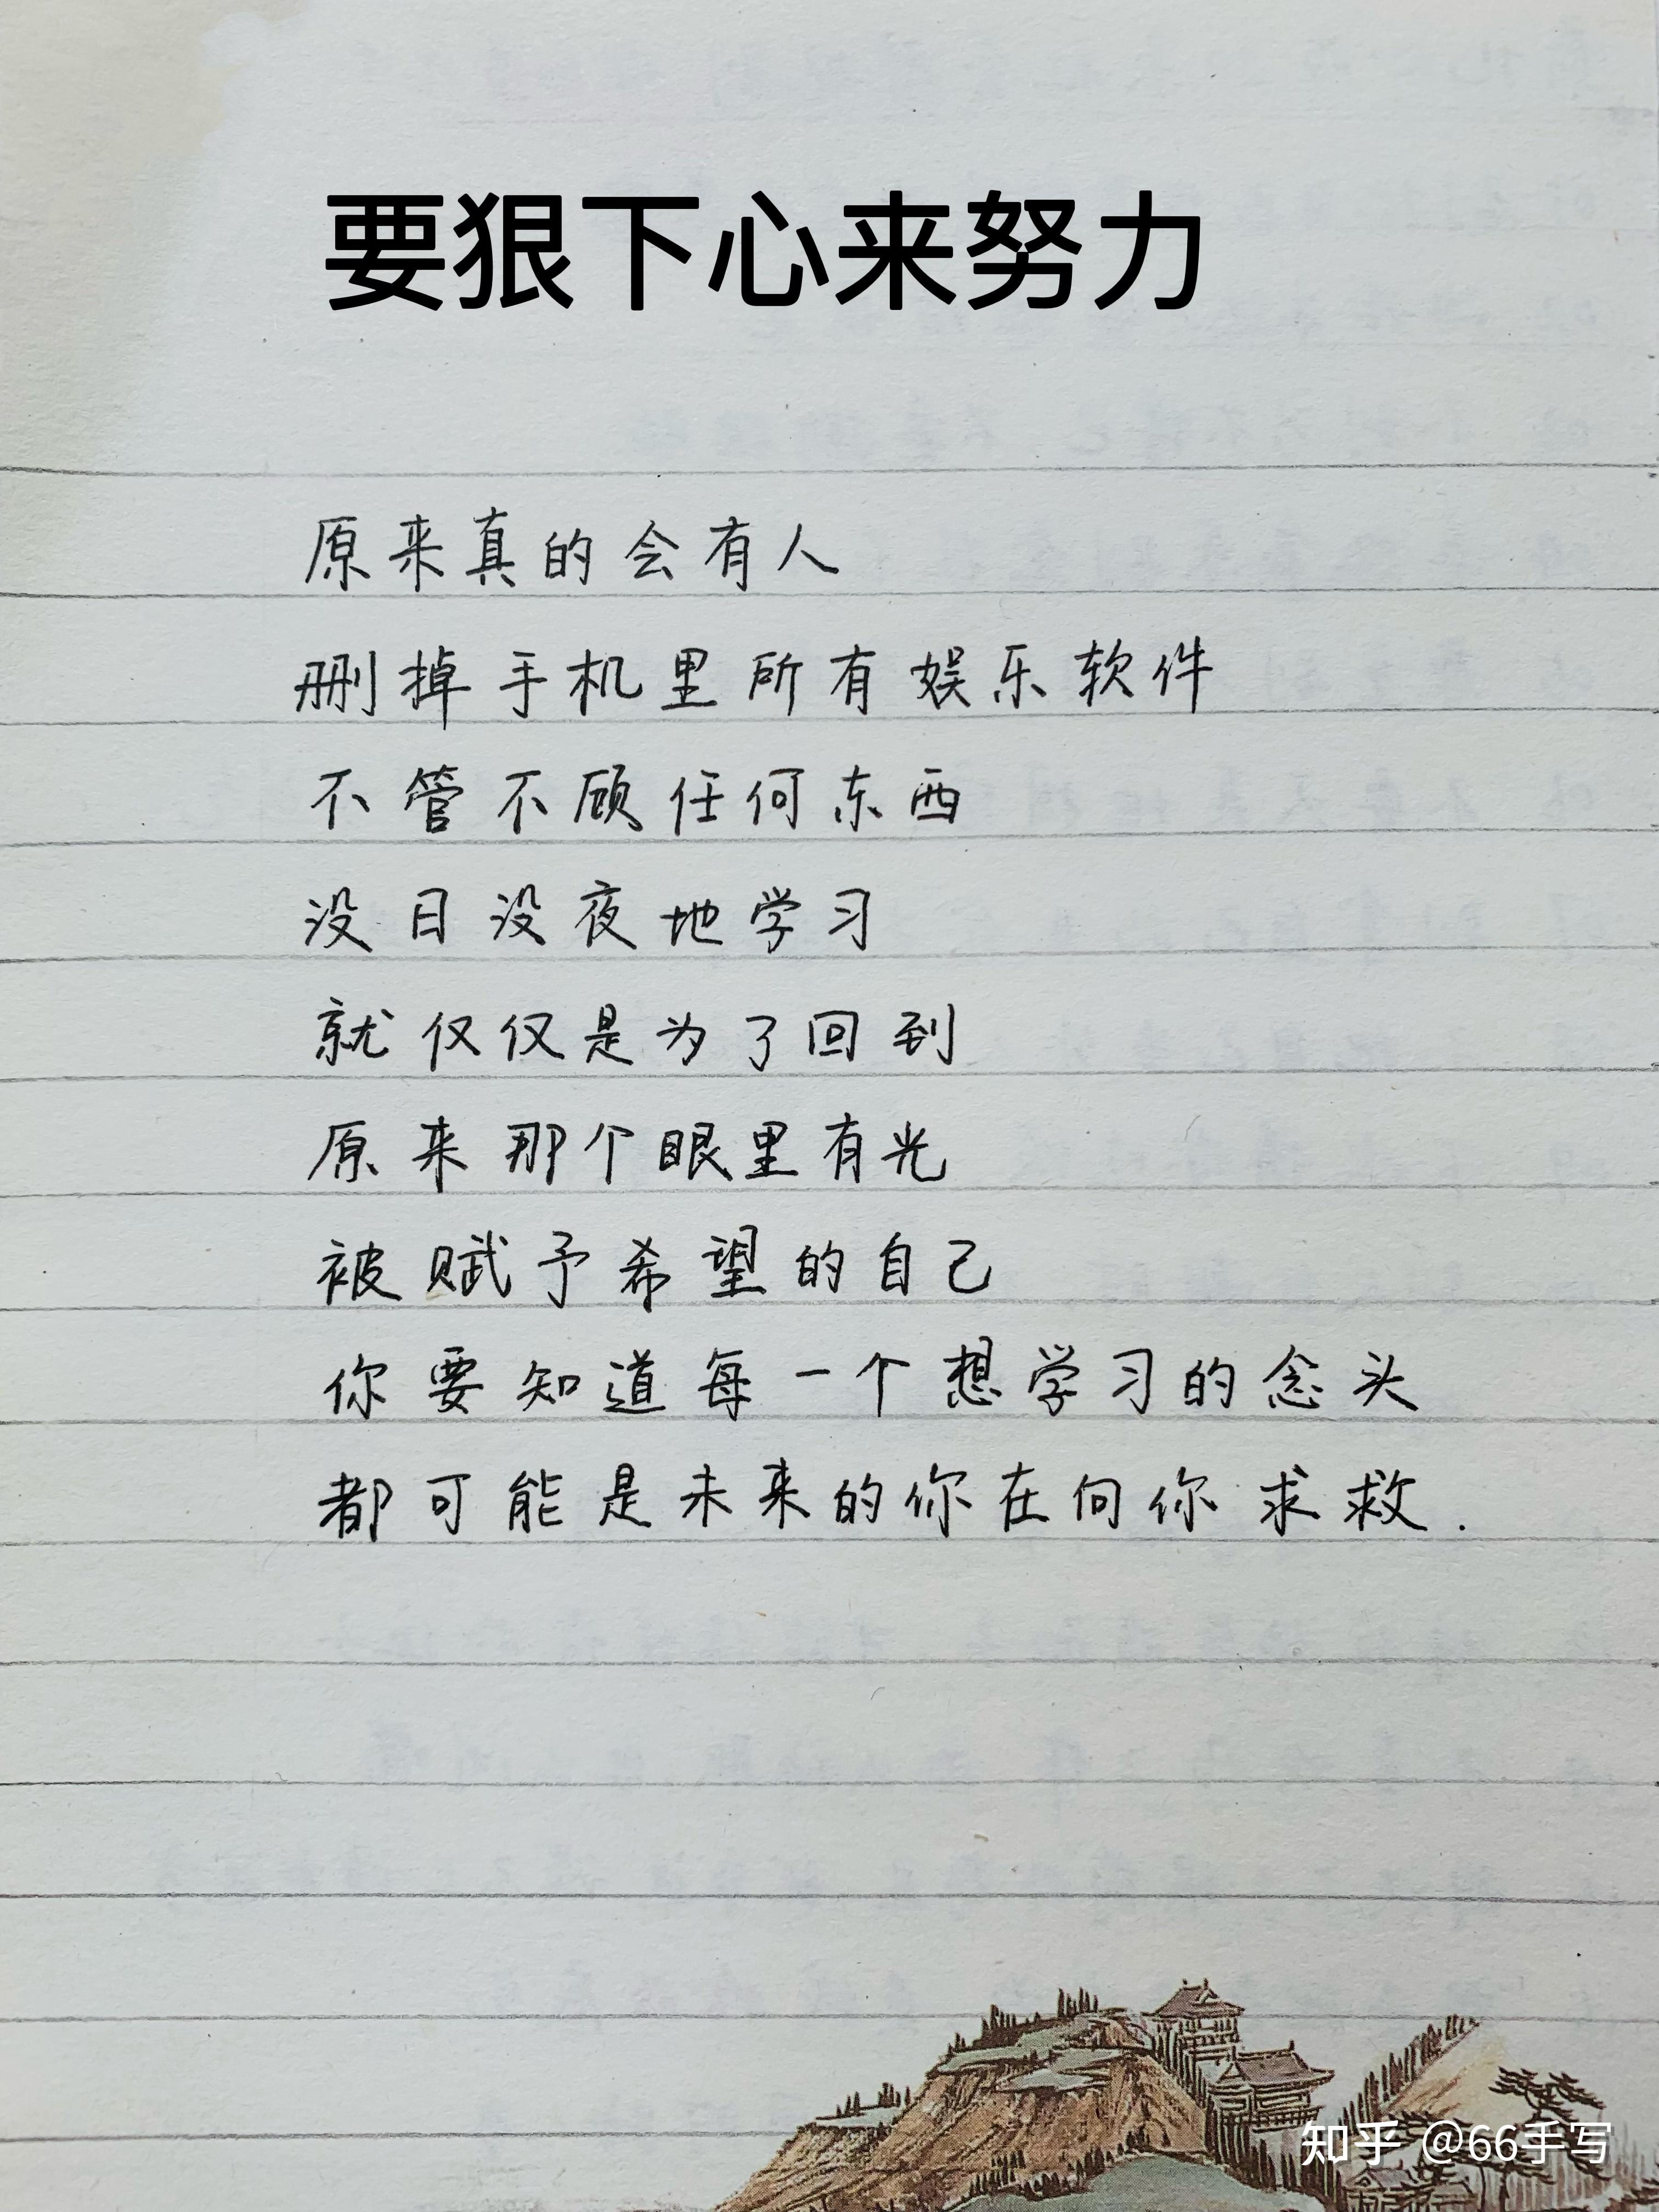 要狠下心来努力
原来真的会有人
删掉手机里所有娱乐软件
不管不顾任何东西
没日没夜地学习
就仅仅是为了回到
原来那个眼里有光
被赋予希望的自己
你要知道每一个想学习的念头
都可能是未来的你在向你求救.
知乎 @66手写